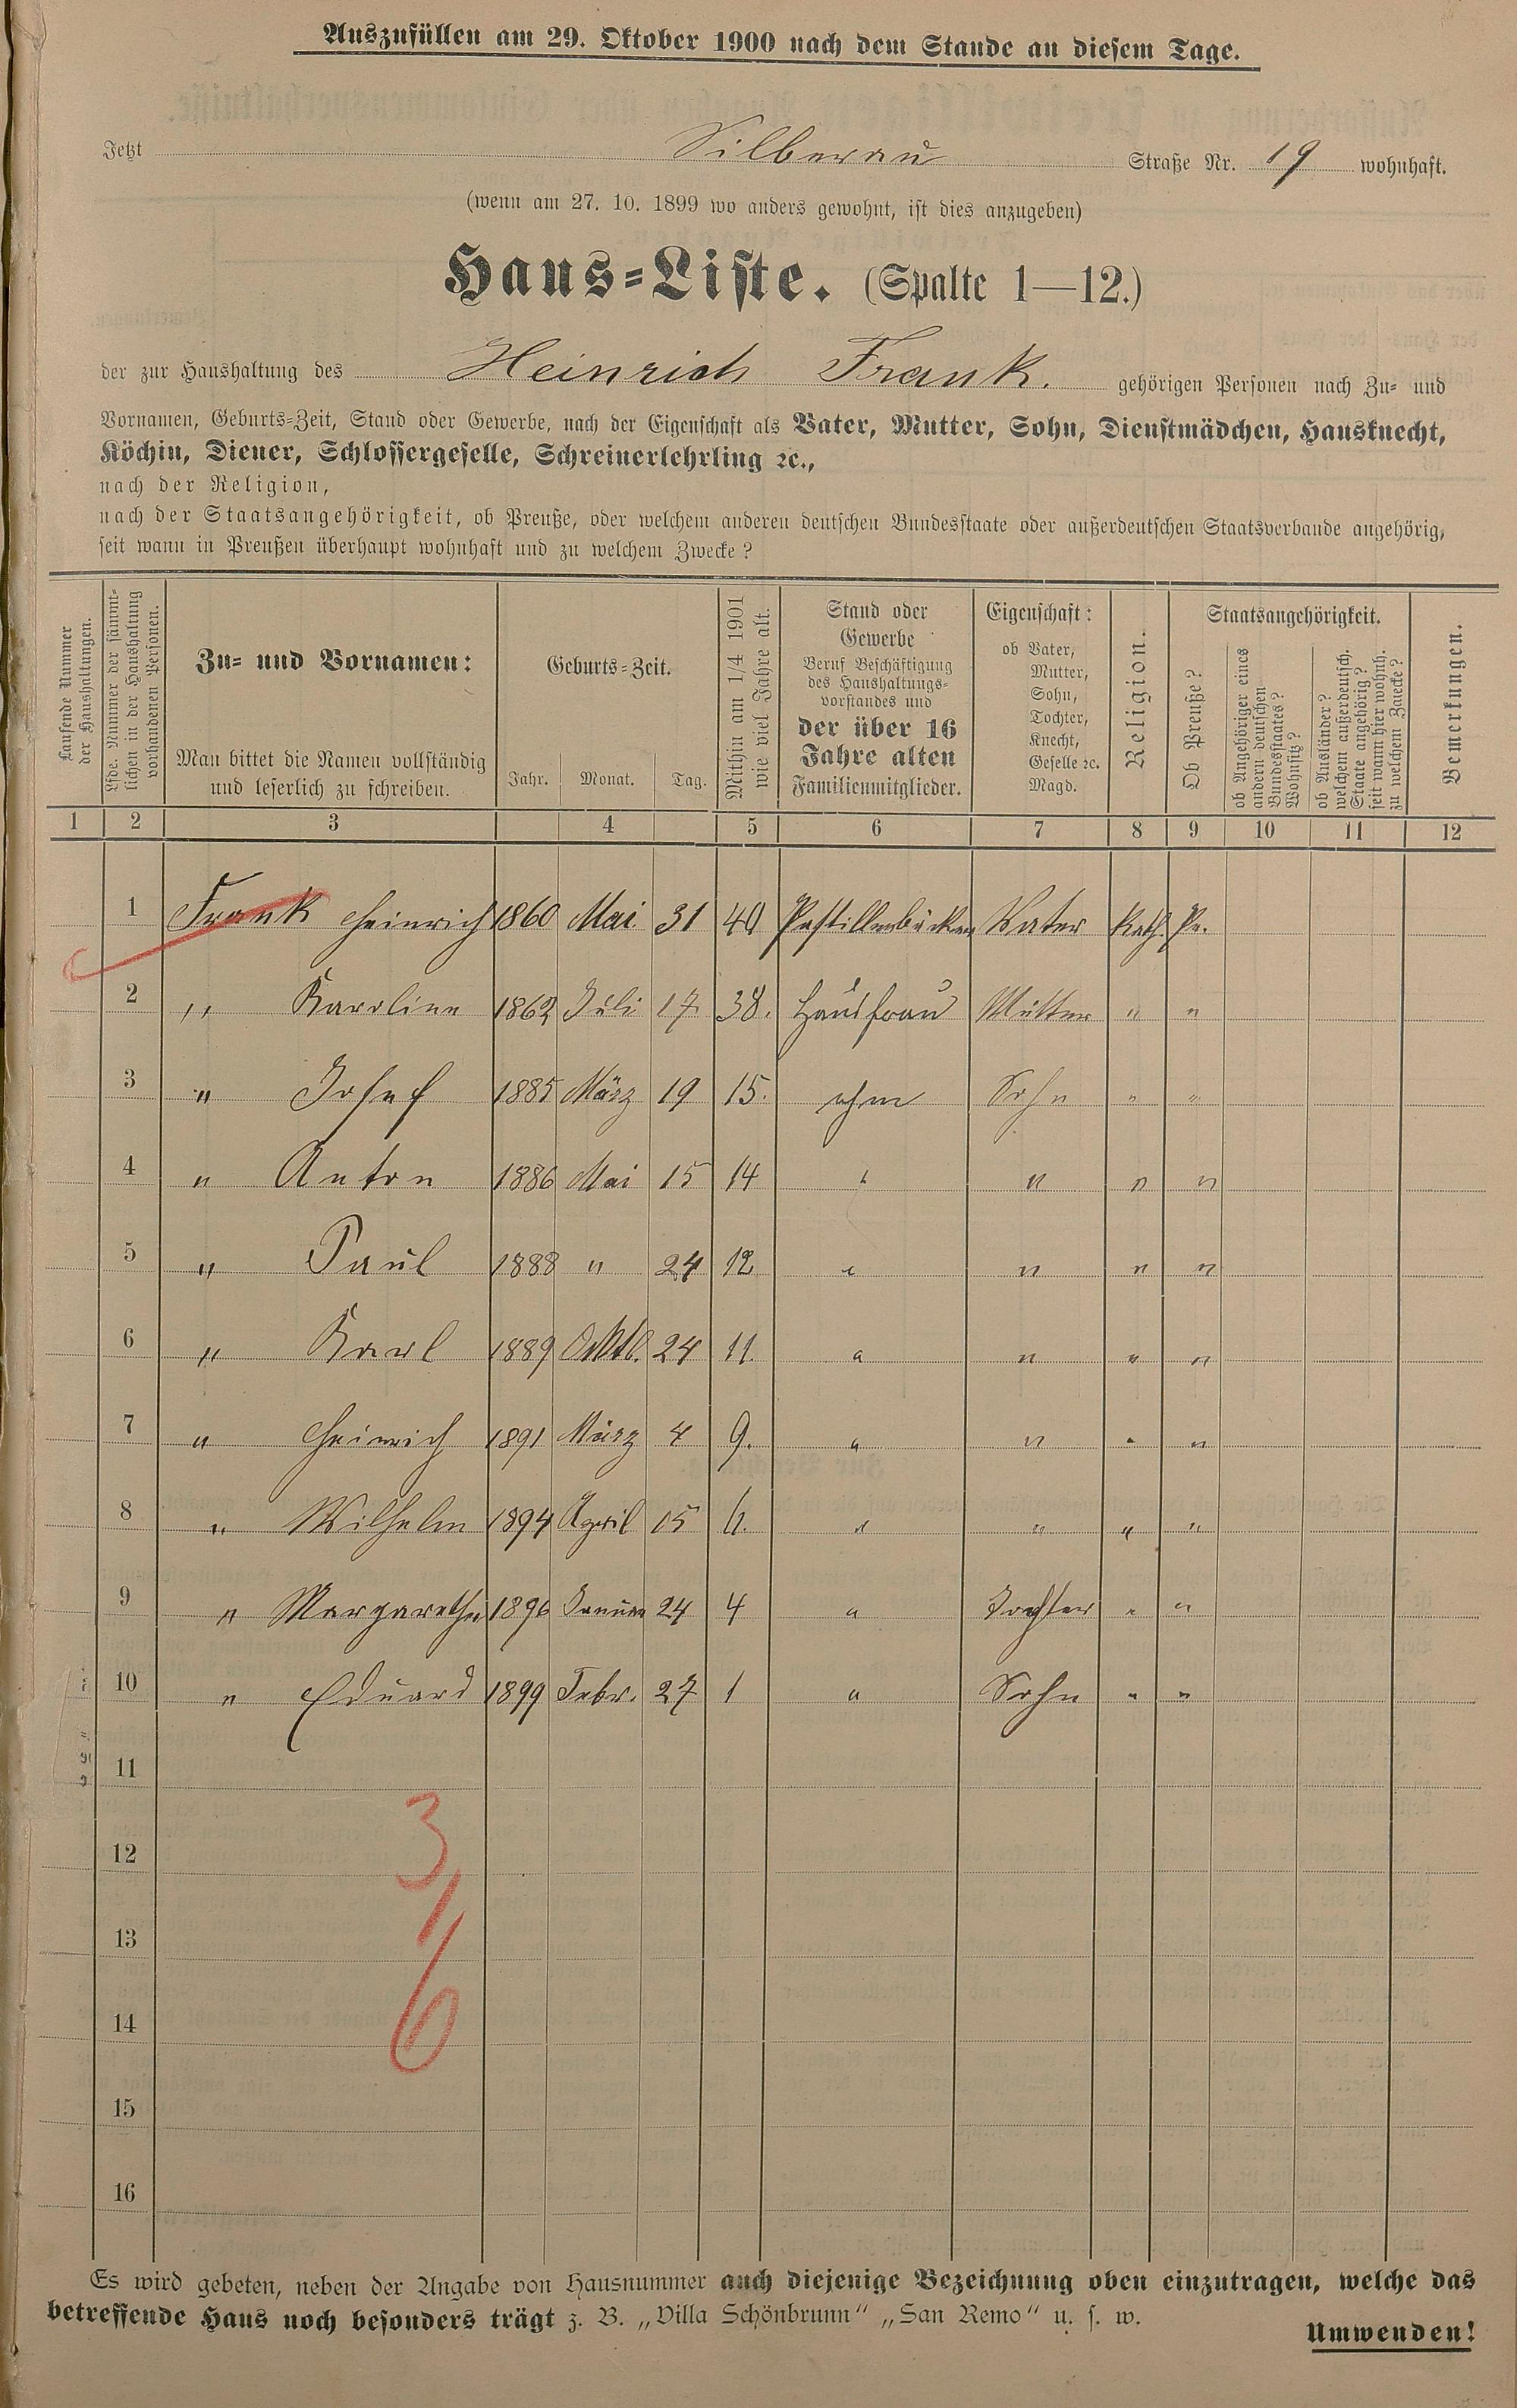 Auszufüllen am 29. Oktober 1900 nach dem Stande an diesem Tage.
Jetzt Silberau Straße Nr. 19 wohnhaft.
(wenn am 27. 10. 1899 wo anders gewohnt, ist dies anzugeben)
Haus-Liste. (Spalte 1—12.)
der zur Haushaltung des Heinrich Frank. gehörigen Personen nach Zu- und
Vornamen, Geburts-Zeit, Stand oder Gewerbe, nach der Eigenschaft als Vater, Mutter, Sohn, Dienstmädchen, Hausknecht,
Köchin, Diener, Schlossergeselle, Schreinerlehrling ꝛc.,
nach der Religion,
nach der Staatsangehörigkeit, ob Preuße, oder welchem anderen deutschen Bundesstaate oder außerdeutschen Staatsverbande angehörig,
seit wann in Preußen überhaupt wohnhaft und zu welchem Zwecke?
Laufende Nummer
der Haushaltungen.
Lfde. Nummer der sämmt-
lichen in der Haushaltung
vorhandenen Personen.
Zu- und Vornamen:
Man bittet die Namen vollständig
und leserlich zu schreiben.
Geburts-Zeit.
Jahr. Monat. Tag.
Mithin am 1/4 1901
wie viel Jahre alt.
Stand oder
Gewerbe
Beruf Beschäftigung
des Haushaltungs-
vorstandes und
der über 16
Jahre alten
Familienmitglieder.
Eigenschaft:
ob Vater,
Mutter,
Sohn,
Tochter,
Knecht,
Geselle ꝛc.
Magd.
Religion.
Staatsangehörigkeit.
Ob Preuße?
ob Angehöriger eines
andern deutschen
Bundesstaates?
Wohnsitz?
ob Ausländer?
welchem außerdeutsch.
Staate angehörig?
seit wann hier wohnh.
zu welchem Zwecke?
Bemerkungen.
1 2 3 4 5 6 7 8 9 10 11 12
1 Frank Heinrich 1860 Mai 31 40 Vater Kath. Pr.
2 " Karoline 1862 Juli 17 38. Hausfrau Mutter " "
3 " Josef 1885 März 19 15. ohne Sohn " "
4 " Anton 1886 Mai 15 14 " " " "
5 " Paul 1888 " 24 12 " " " "
6 " Karl 1889 Oktb. 24 11. " " " "
7 " Heinrich 1891 März 4 9. " " " "
8 " Wilhelm 1894 April 15 6. " " " "
9 " Margarethe 1896 Januar 24 4 " Tochter " "
10 " Eduard 1899 Febr. 27 1 " Sohn " "
11
12
13
14
15
16
3/6
Es wird gebeten, neben der Angabe von Hausnummer auch diejenige Bezeichnung oben einzutragen, welche das
betreffende Haus noch besonders trägt z. B. „Villa Schönbrunn" „San Remo" u. s. w.
Umwenden!